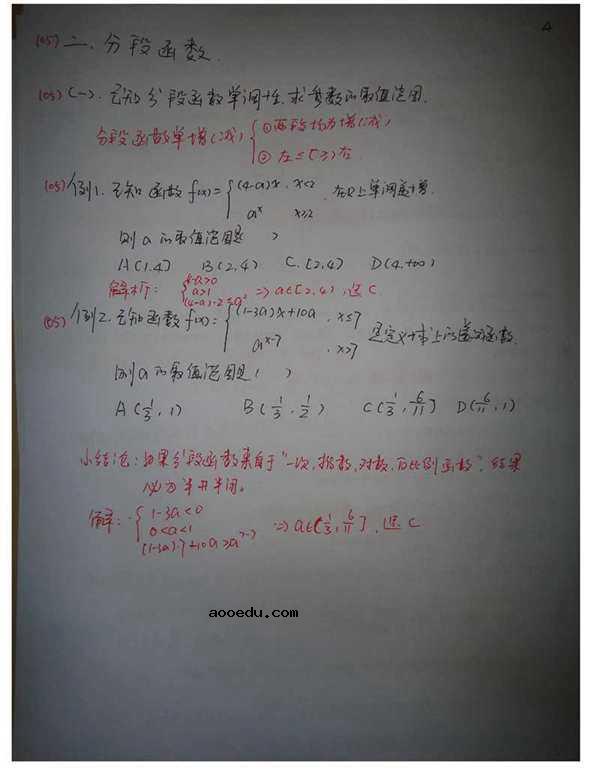 4
(05) 二、分段函数.
(05) (一). 已知分段函数单调性,求参数的取值范围.
分段函数单增(减) { ①两段均为增(减)
② 左≤[≥]右
(05) 例1. 已知函数 f(x)= { (4-a)x , x<2
a^x x≥2 , 在R上单调递增.
则a的取值范围是( )
A (1,4) B (2,4) C. [2,4) D (4,+∞)
解析: { 4-a>0
a>1
(4-a)·2≤a² ⇒ a∈[2,4) ,选C
(05) 例2. 已知函数 f(x)= { (1-3a)x+10a , x≤7
a^{x-7} , x>7 是定义域上的递减函数.
则a的取值范围是( )
A (1/3, 1) B (1/3, 1/2) C (1/3, 6/11] D (6/11, 1)
小结论: 如果分段函数来自于"一次,指数,对数,反比例函数",结果
必为半开半闭.
解: { 1-3a<0
0<a<1
(1-3a)·7+10a≥a^{7-7} ⇒ a∈(1/3, 6/11] ,选C
aooedu.com